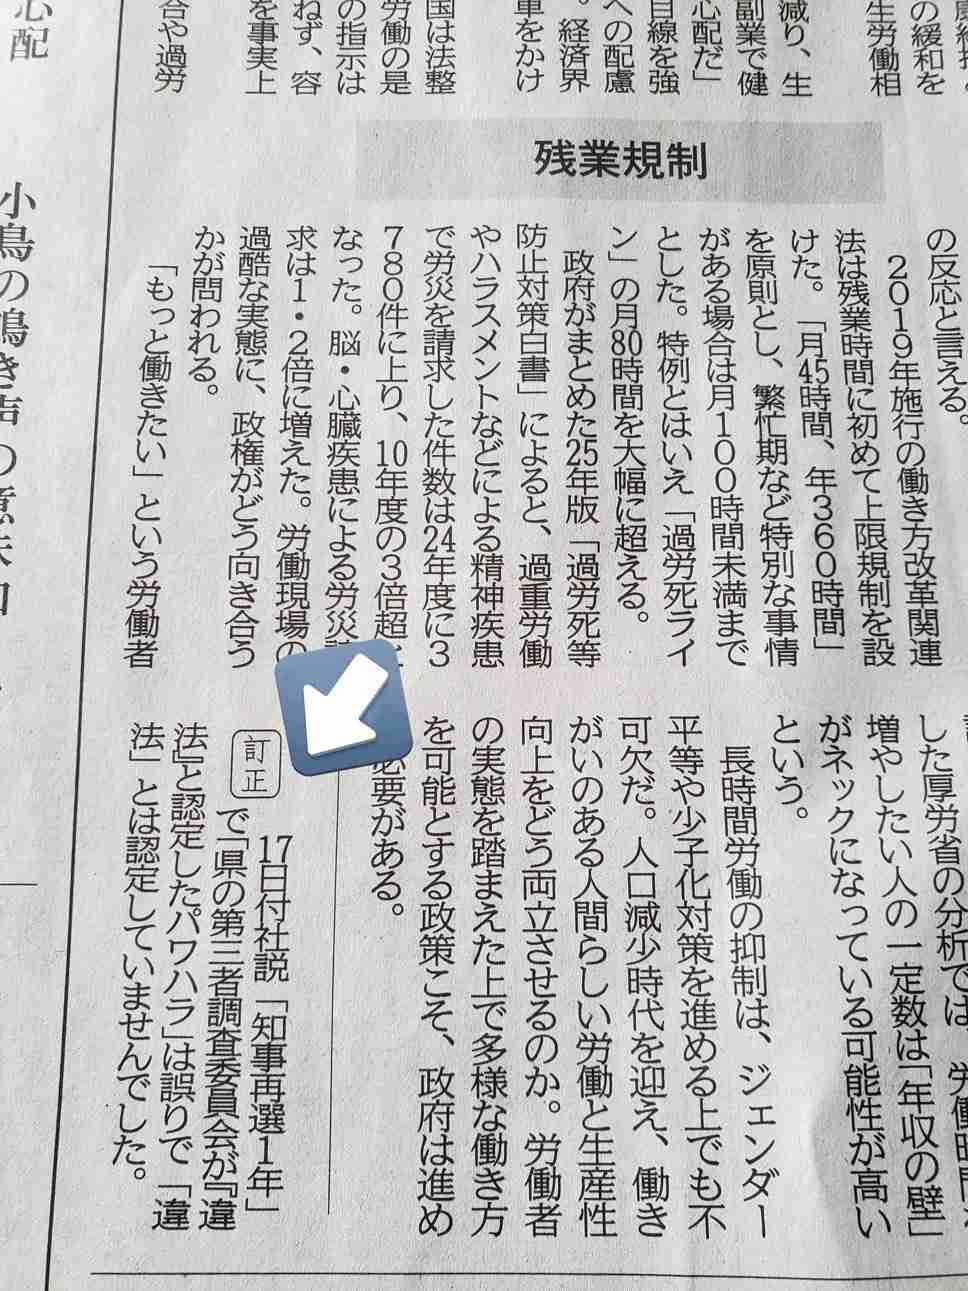 減り、生
副業で健
心配だ」
目線を強
への配慮
。経済界
車をかけ
国は法整
労働の是
の指示は
ねず、容
を事実上
合や過労
の緩和を
生労働相
残業規制
の反応と言える。
２０１９年施行の働き方改革関連
法は残業時間に初めて上限規制を設
けた。「月45時間、年３６０時間」
を原則とし、繁忙期など特別な事情
がある場合は月１００時間未満まで
とした。特例とはいえ「過労死ライ
ン」の月80時間を大幅に超える。
政府がまとめた25年版「過労死等
防止対策白書」によると、過重労働
やハラスメントなどによる精神疾患
で労災を請求した件数は24年度に３
７８０件に上り、10年度の３倍超と
なった。脳・心臓疾患による労災請
求は１・２倍に増えた。労働現場の
過酷な実態に、政権がどう向き合う
かが問われる。
「もっと働きたい」という労働者
した厚労省の分析では、労働時間を
増やしたい人の一定数は「年収の壁」
がネックになっている可能性が高い
という。
長時間労働の抑制は、ジェンダー
平等や少子化対策を進める上でも不
可欠だ。人口減少時代を迎え、働き
がいのある人間らしい労働と生産性
向上をどう両立させるのか。労働者
の実態を踏まえた上で多様な働き方
を可能とする政策こそ、政府は進め
必要がある。
訂正
17日付社説「知事再選１年」
で「県の第三者調査委員会が『違
法』と認定したパワハラ」は誤りで「違
法」とは認定していませんでした。
心配
小鳥の鳴き声の意味